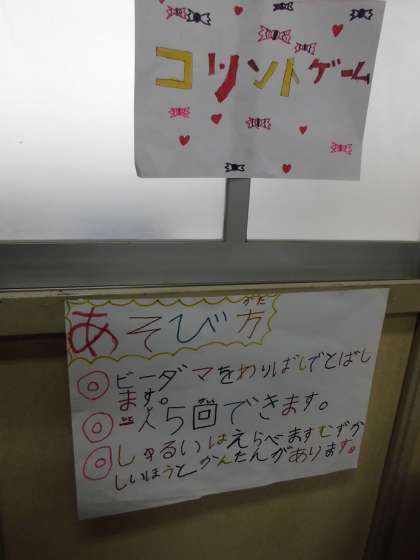 コリントゲーム
あそび方
がた
◎ビーダマをわりばしでとばし
ます。
◎一人5回できます。
◎しゅるいはえらべますむずか
しいほうとかんたんがあります。